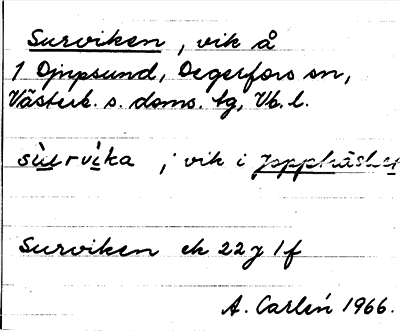 Surviken, vik å
1 Djupsund, Degerfors sn,
Västerb. s. doms. tg, Vb. l.
sùrvìka ; vik i
Surviken ek 22 J 1 f
A. Carlén 1966.